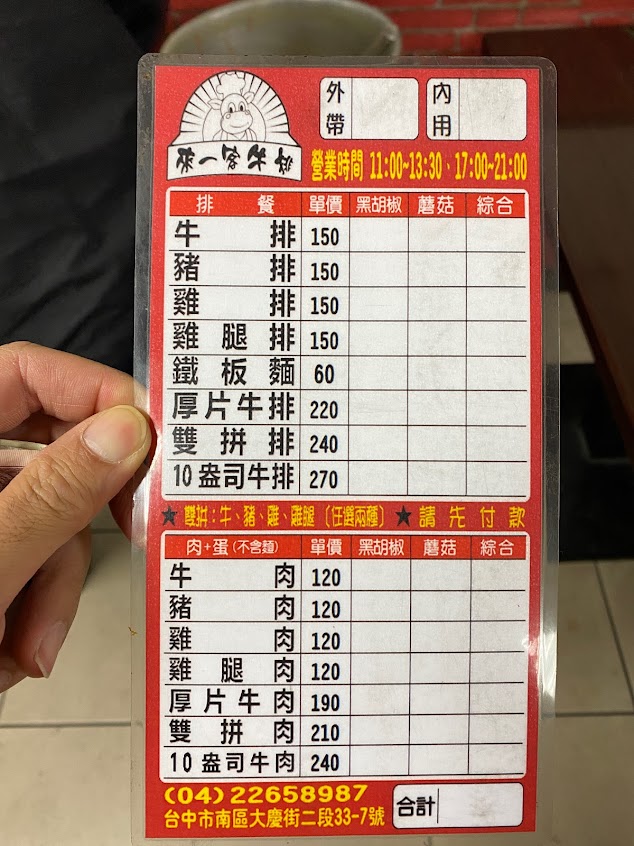 來一客牛排
外帶 內用
營業時間 11:00~13:30、17:00~21:00
排餐 單價 黑胡椒 蘑菇 綜合
牛排 150
豬排 150
雞排 150
雞腿排 150
鐵板麵 60
厚片牛排 220
雙拼排 240
10盎司牛排 270
★ 雙拼：牛、豬、雞、雞腿〔任選兩種〕★ 請先付款
肉+蛋(不含麵) 單價 黑胡椒 蘑菇 綜合
牛肉 120
豬肉 120
雞肉 120
雞腿肉 120
厚片牛肉 190
雙拼肉 210
10盎司牛肉 240
(04)22658987
台中市南區大慶街二段33-7號
合計